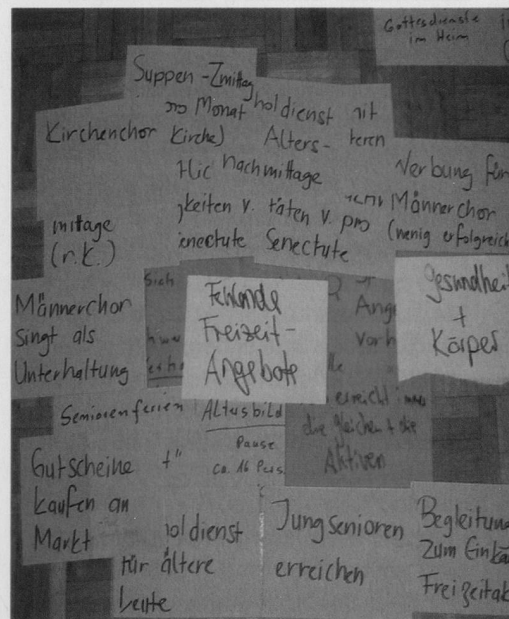 Gottesdienste
im Heim
Suppen-Zmittag
pro Monat
Kirche)
Kirchenchor
holdienst
Alters-
nachmittage
täten v. pro
Senectute
mit
teren
keiten v.
enectute
Werbung für
Männerchor
(wenig erfolgreich
mittage
(r.k.)
Männerchor
singt als
Unterhaltung
sich
Fehlende
Freizeit-
Angebote
Ang
vorh
Gesundhei
+
Körper
Seniorenferien
Altersbild
Pause
ca. 16 Pers.
erreicht immer
die gleichen + die
Aktiven
Gutscheine
kaufen am
Markt
holdienst
für ältere
Leute
Jungsenioren
erreichen
Begleitung
Zum Einka
Freizeitak